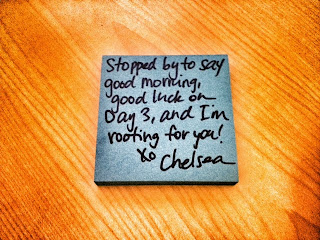 Stopped by to say
good morning,
good luck on
Day 3, and I'm
rooting for you!
xo
Chelsea